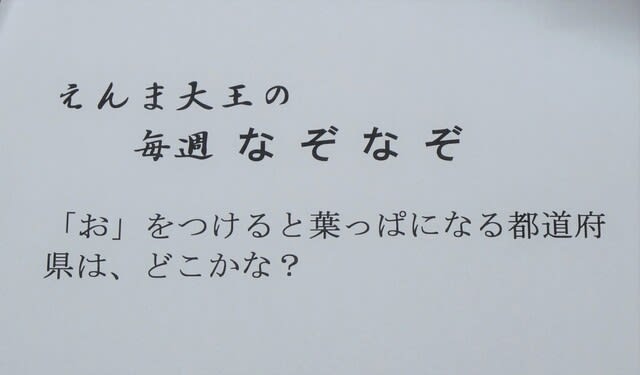 えんま大王の
毎週 なぞなぞ
「お」をつけると葉っぱになる都道府
県は、どこかな？